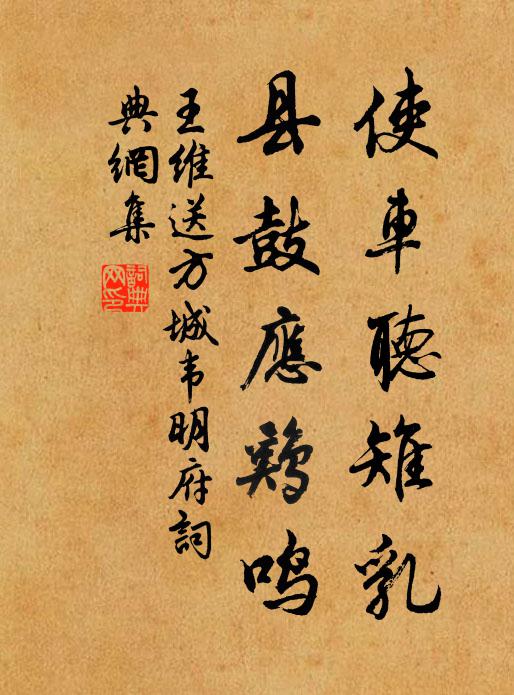 使車聽雉乳
县鼓應鷄鸣
王維送方城韦明府詞
典網集
詞典
网印